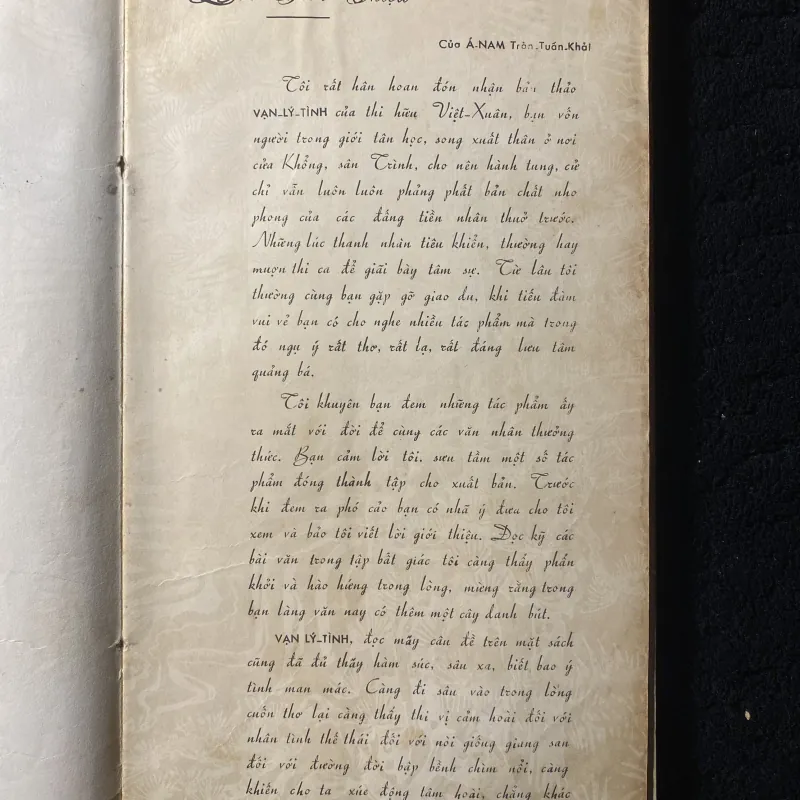 Của Á-NAM Trần-Tuấn-Khải
Tôi rất hân hoan đón nhận bản thảo
VẠN-LÝ-TÌNH của thi hữu Việt-Xuân, bạn vốn
người trong giới tân học, song xuất thân ở nơi
cửa Khổng, sân Trình, cho nên hành tung, cử
chỉ vẫn luôn luôn phảng phất bản chất nho
phong của các đấng tiền nhân thuở trước.
Những lúc thanh nhàn tiêu khiển, thường hay
mượn thi ca để giãi bày tâm sự. Từ lâu tôi
thường cùng bạn gặp gỡ giao du, khi tiếu đàm
vui vẻ bạn có cho nghe nhiều tác phẩm mà trong
đó ngụ ý rất thơ, rất lạ, rất đáng lưu tâm
quảng bá.
Tôi khuyên bạn đem những tác phẩm ấy
ra mắt với đời để cùng các văn nhân thưởng
thức. Bạn cảm lời tôi, sưu tầm một số tác
phẩm đóng thành tập cho xuất bản. Trước
khi đem ra phó cảo bạn có nhã ý đưa cho tôi
xem và bảo tôi viết lời giới thiệu. Đọc kỹ các
bài văn trong tập bất giác tôi càng thấy phấn
khởi và hào hứng trong lòng, mừng rằng trong
bạn làng văn nay có thêm một cây danh bút.
VẠN LÝ-TÌNH, đọc mấy câu đề trên mặt sách
cũng đã đủ thấy hàm súc, sâu xa, biết bao ý
tình man mác. Càng đi sâu vào trong lòng
cuốn thơ lại càng thấy thi vị cảm hoài đối với
nhân tình thế thái đối với nòi giống giang san
đối với đường đời bập bềnh chìm nổi, càng
khiến cho ta xúc động tâm hoài, chẳng khác